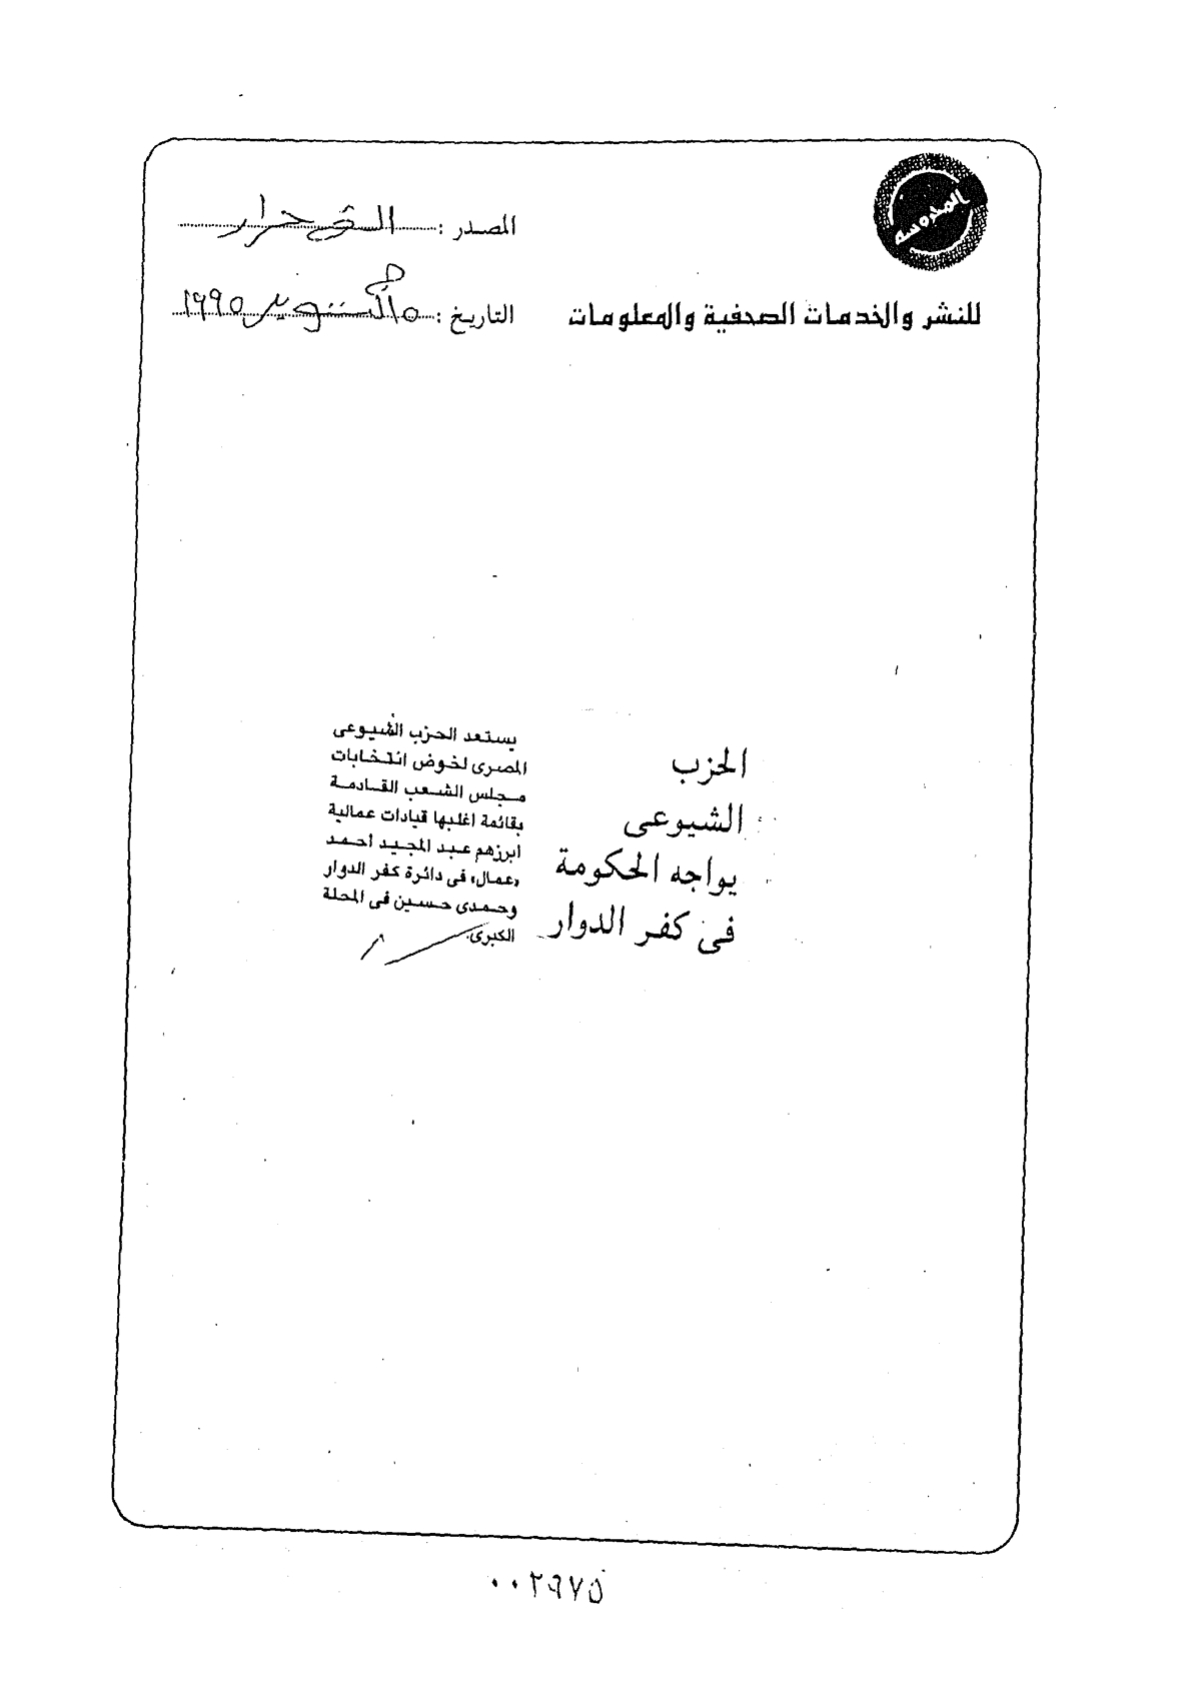 المحروسة
المصدر :
للنشر والخدمات الصحفية والمعلومات
التاريخ : ٥ أكتوبر ١٩٩٥
الحزب
الشيوعى
يواجه الحكومة
فى كفر الدوار
يستعد الحزب الشيوعى
المصرى لخوض انتخابات
مجلس الشعب القادمة
بقائمة اغلبها قيادات عمالية
ابرزهم عبد المجيد أحمد
«عمال» فى دائرة كفر الدوار
وحمدى حسين فى المحلة
الكبرى.
٠٠٢٩٧٥